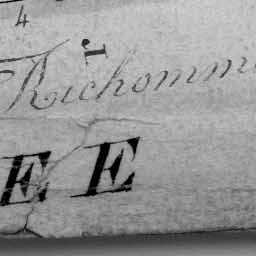 4
J.
Richommi
E E